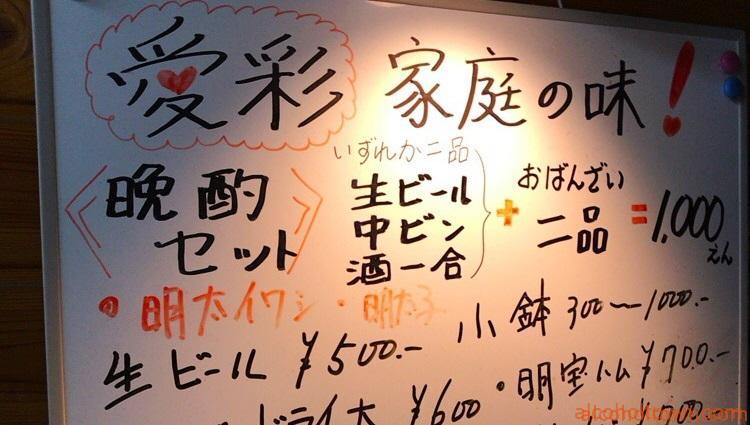 愛彩 家庭の味!
いずれか二品
晩酌
セット
生ビール
中ビン
酒一合
+
おばんざい
二品
=1,000
えん
・明太イワシ・明太子
小鉢 300〜1000.-
生ビール ¥500.-
・明宝ハム ¥700.-
ドライ大 ¥600